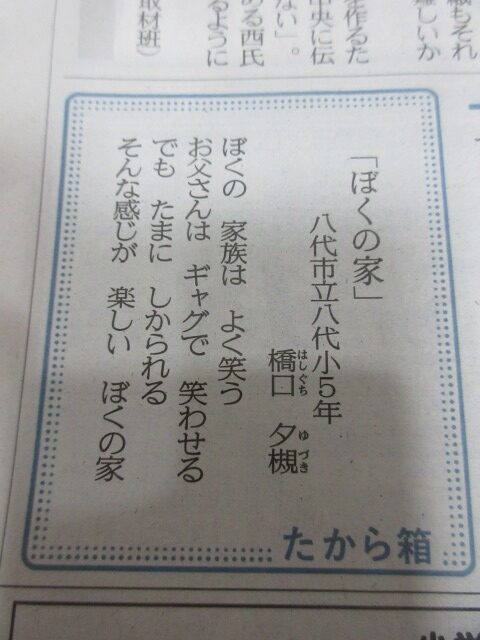 織もそれ
難しいか
を作るた
中央に伝
ない」。
ある西氏
るように
取材班）
「ぼくの家」
八代市立八代小５年
橋口　夕槻
はしぐち　ゆづき
ぼくの　家族は　よく笑う
お父さんは　ギャグで　笑わせる
でも　たまに　しかられる
そんな感じが　楽しい　ぼくの家
たから箱